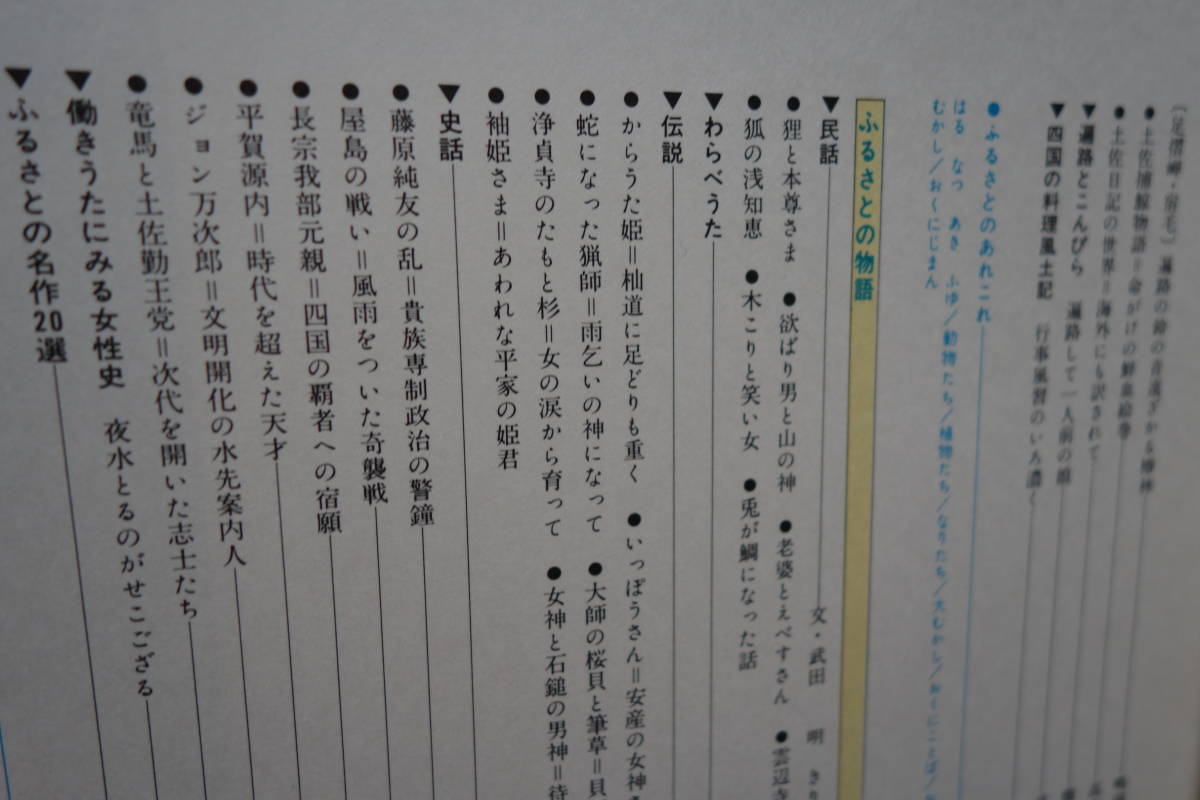 〔足摺岬・宿毛〕遍路の鈴の音遠ざかる
●土佐捕鯨物語＝命がけの鮮血絵巻
●土佐日記の世界＝海外にも訳されて
▼遍路とこんぴら 遍路して一人前の娘
▼四国の料理風土記 行事風習のいろ濃く
●ふるさとのあれこれ
はる なつ あき ふゆ／動物たち／植物たち／なりたち／大むかし／おくにことば／
むかし／おくにじまん
ふるさとの物語
▼民話 文・武田 明
●狸と本尊さま ●欲ばり男と山の神 ●老婆とえべすさん ●雲辺寺
●狐の浅知恵 ●木こりと笑い女 ●兎が鯛になった話
▼わらべうた
▼伝説
●からうた姫＝柚道に足どりも重く ●いっぽうさん＝安産の女神
●蛇になった猟師＝雨乞いの神になって ●大師の桜貝と筆草＝貝
●浄貞寺のたもと杉＝女の涙から育って ●女神と石鎚の男神＝待
●袖姫さま＝あわれな平家の姫君
▼史話
●藤原純友の乱＝貴族専制政治の警鐘
●屋島の戦い＝風雨をついた奇襲戦
●長宗我部元親＝四国の覇者への宿願
●平賀源内＝時代を超えた天才
●ジョン万次郎＝文明開化の水先案内人
●竜馬と土佐勤王党＝次代を開いた志士たち
▼働きうたにみる女性史 夜水とるのがせこござる
▼ふるさとの名作20選